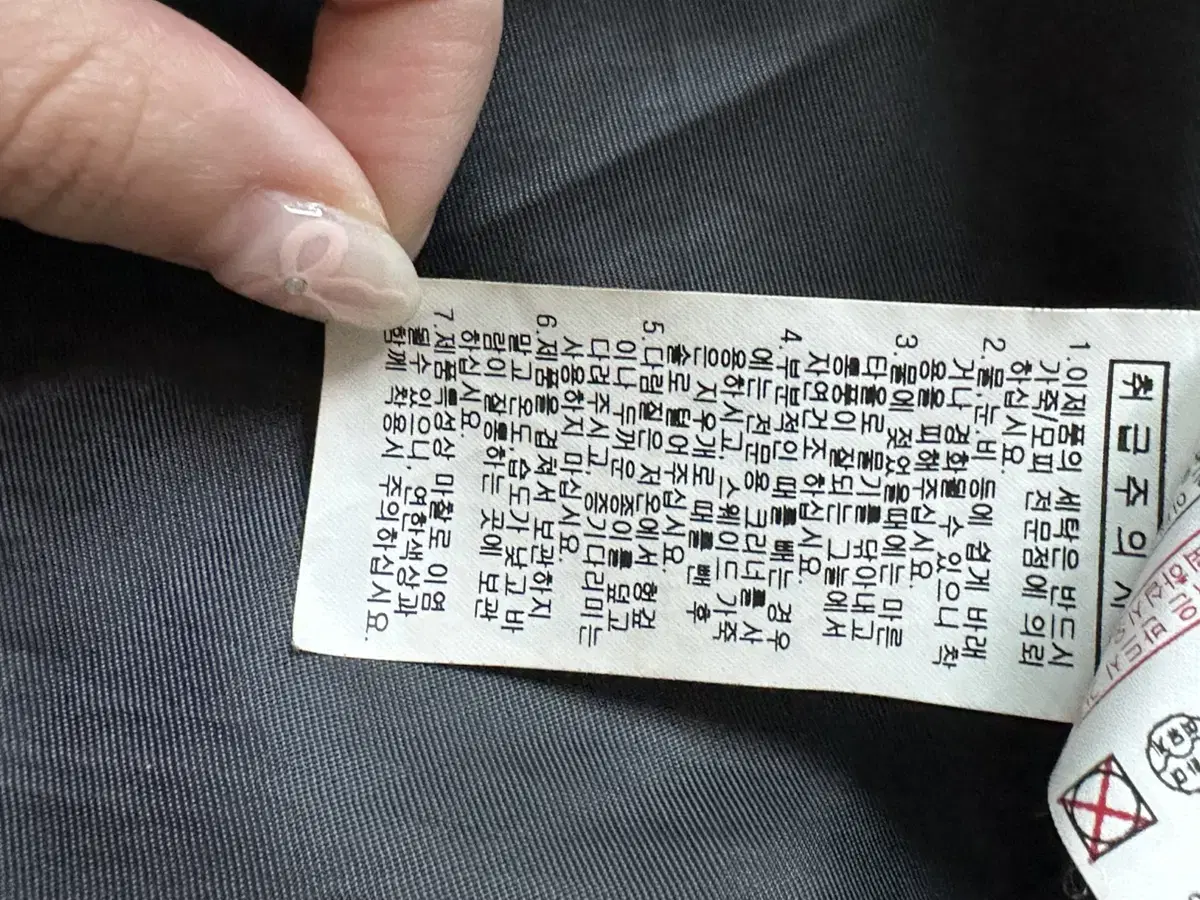 취급주의사
1.이제품의 세탁은 반드시
가죽/모피 전문점에 의뢰
하십시요.
2.물,눈,비 등에 쉽게 바래
거나 경화될수 있으니 착
용을 피해주십시요.
3.물에 젖었을때에는 마른
타올로 물기를 닦아내고
통풍이 잘되는 그늘에서
자연건조 하십시요.
4.부분적인 때를 빼는 경우
에는 전문용 크리너를 사
용하시고, 스웨이드 가죽
은 지우개로 때를 뺀 후
솔로 털어주십시요.
5.다림질은 저온에서 헝겊
이나 두꺼운 종이를 덮고
다려주시고, 증기다리미는
사용하지 마십시요.
6.제품을 겹쳐서 보관하지
말고 온도,습도가 낮고 바
람이 잘통하는 곳에 보관
하십시요.
7.제품특성상 마찰로 이염
될수 있으니, 연한색상과
함께 착용시 주의하십시요.